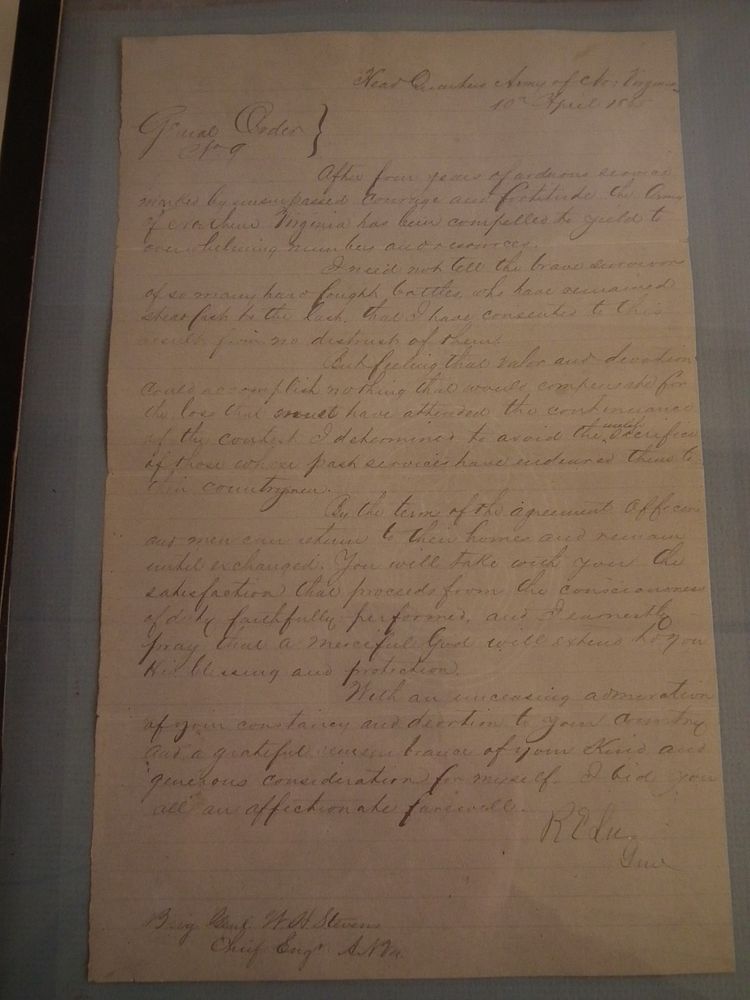 Head Quarters Army of No: Virginia
10th April 1865
General Order
No 9
After four years of arduous service
marked by unsurpassed courage and fortitude the Army
of Northern Virginia has been compelled to yield to
overwhelming numbers and resources.
I need not tell the brave survivors
of so many hard fought battles who have remained
steadfast to the last, that I have consented to this
result from no distrust of them.
But feeling that valor and devotion
could accomplish nothing that would compensate for
the loss that must have attended the continuance
of the contest I determined to avoid the useless sacrifice
of those whose past services have endeared them to
their countrymen.
By the term of the agreement Officers
and men can return to their homes and remain
until exchanged. You will take with you the
satisfaction that proceeds from the consciousness
of duty faithfully performed, and I earnestly
pray that a merciful God will extend to you
His blessing and protection.
With an unceasing admiration
of your constancy and devotion to your Country
and a grateful remembrance of your Kind and
generous consideration for myself. I bid you
all an affectionate farewell.
R E Lee
Genl
Brig Genl W H Stevens
Chief Engr A N Va